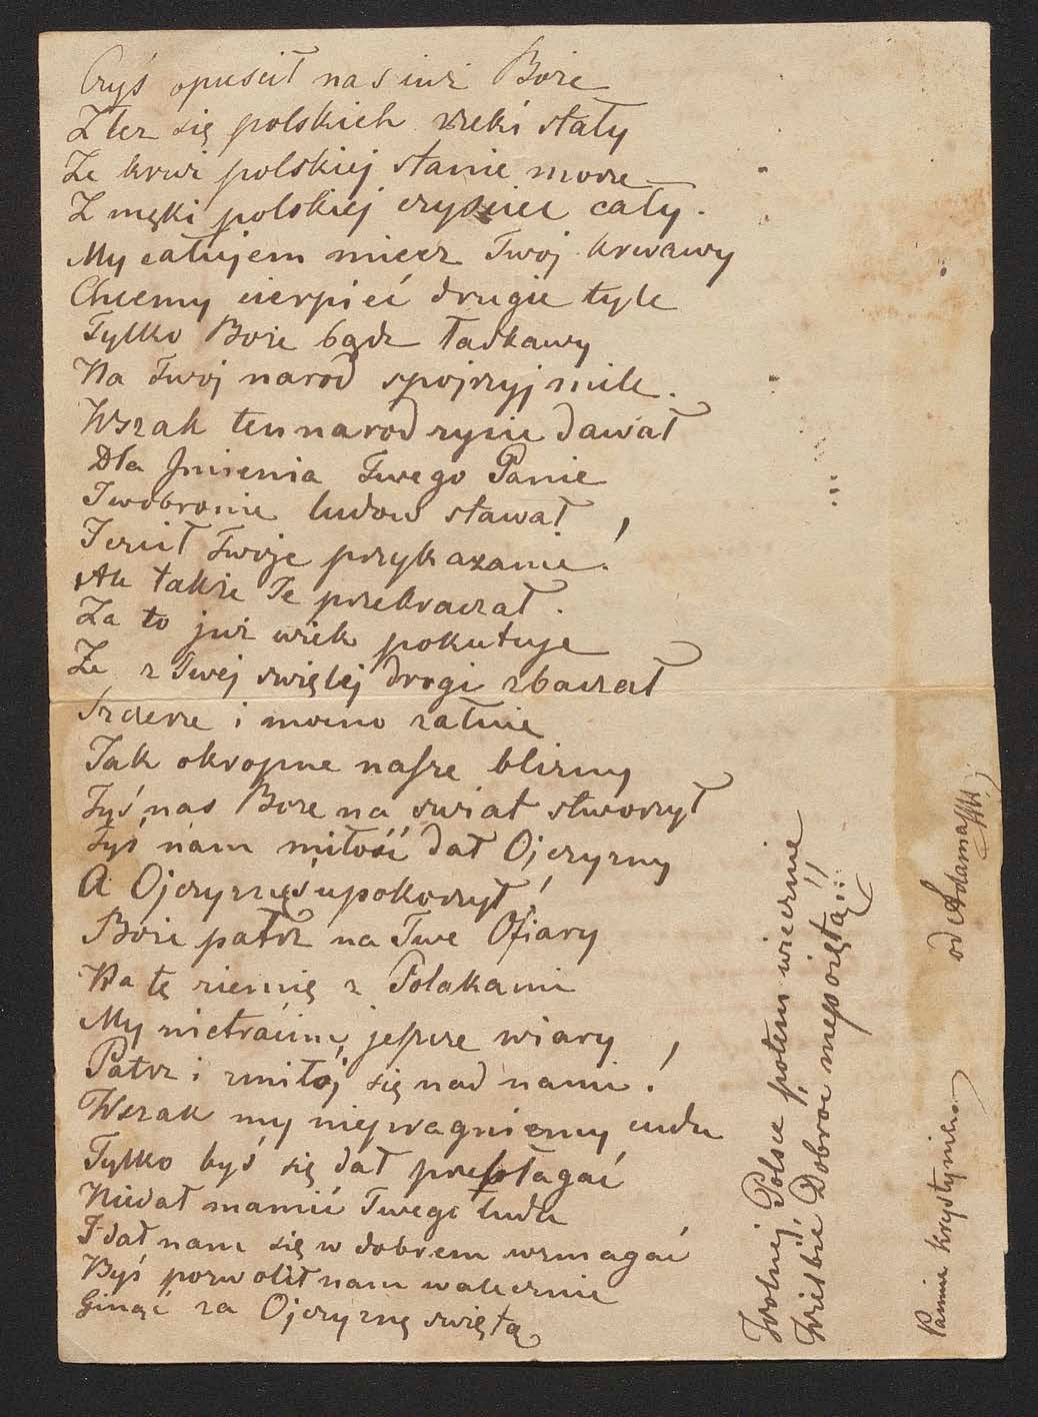 Czyś opuscił nas iuż Boże
Z łez się polskich rzeki stały
Ze krwi polskiej stanie morze
Z męki polskiej czyściec cały.
My całujem miecz Twoj krwawy
Chcemy cierpieć drugie tyle
Tylko Boże bądz łaskawy
Na Twoj narod spojrzyj mile.
Wszak ten narod zycie dawał
Dla Jmienia Twego Panie
I w obronie ludow stawał,
I czcił Twoje przykazanie.
Ale także Te przekraczał.
Za to już wiek pokutuje
Ze z Twej swiętej drogi zbaczał
Szczerze i mocno załuie
Jak okropne nasze blizny
Tyś nas Boże na swiat stworzył
Tyś nam miłość dał Ojczyzny
A Ojczyznęś upokorzył!
Boże patrz na Twe Ofiary
Na tę ziemię z Polakami
My nietraćim jeszcze wiary,
Patrz i zmiłój się nad nami!
Wszak my niepragniemy cudu
Tylko byś się dał przebłagać
Niedał mamić Twego ludu
I dał nam się w dobrem wzmagać
Byś pozwolił nam walecznie
Ginąć za Ojczyznę swiętą
W wolnej Polsce, potem wiecznie
Wielbić Dobroć niepojętą!!...
Pannie Krystynie
od Adama